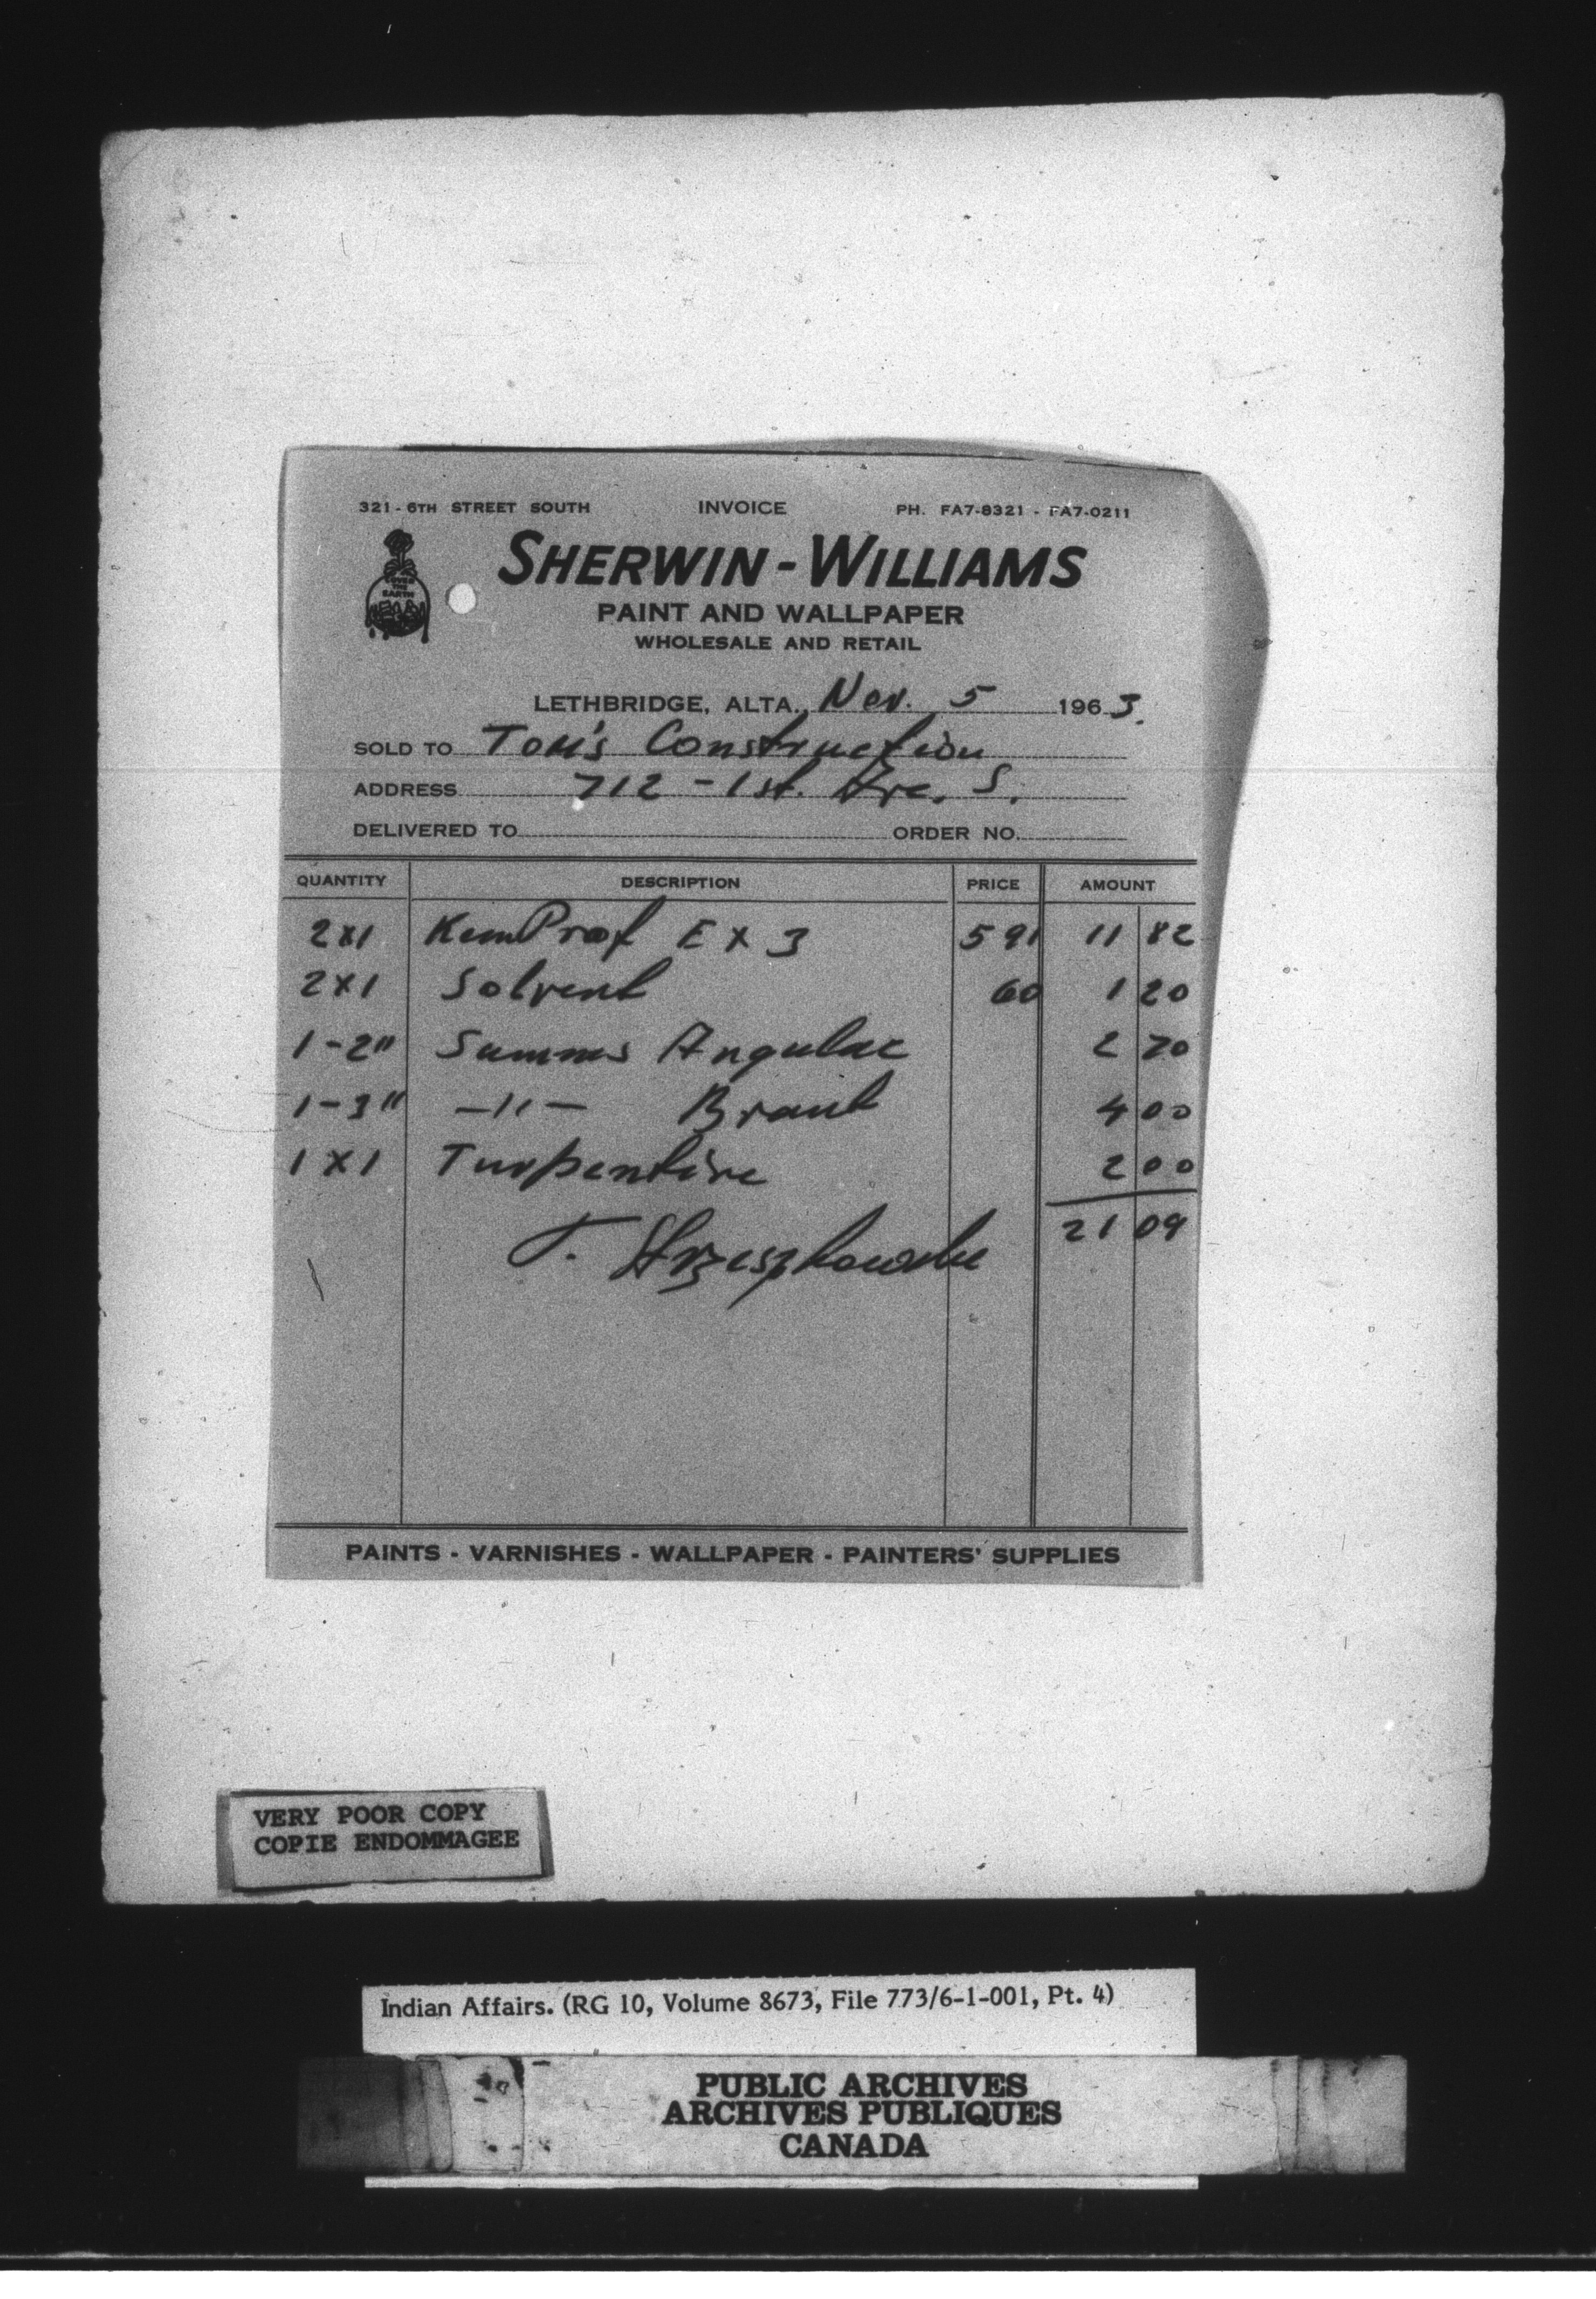 321 - 6TH STREET SOUTH INVOICE PH. FA7-8321 - FA7-0211
COVER THE EARTH
SHERWIN-WILLIAMS
PAINT AND WALLPAPER
WHOLESALE AND RETAIL
LETHBRIDGE, ALTA., Nov. 5 1963.
SOLD TO Tom's Construction
ADDRESS 712 - 1st. Ave. S.
DELIVERED TO ORDER NO.
QUANTITY DESCRIPTION PRICE AMOUNT
2x1 Kem Prof E x 3 5 91 11 82
2x1 Solvent 60 1 20
1-2" Angular 2 70
1-3" -"- 4 00
1x1 Turpentine 2 00
21 09
T.
PAINTS - VARNISHES - WALLPAPER - PAINTERS' SUPPLIES
VERY POOR COPY
COPIE ENDOMMAGEE
Indian Affairs. (RG 10, Volume 8673, File 773/6-1-001, Pt. 4)
PUBLIC ARCHIVES
ARCHIVES PUBLIQUES
CANADA